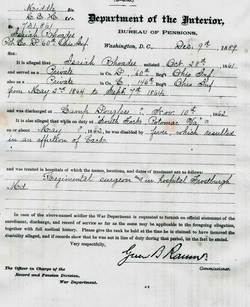 Middle
Department of the Interior,
BUREAU OF PENSIONS,
Washington, D.C., Dec. 9th, 1889
Josiah Rhoades
Co. D. 60th Ohio Inf.
It is alleged that Josiah Rhoades enlisted Oct 28th, 1861
and served as a Private in Co. D, 60th Reg't Ohio Inf
and served as a Private in Co. E, 146th Reg't Ohio Inf
from May 2nd 1864 to Sept 7th 1864
and was discharged at Camp Douglas on Nov. 10th, 1862
It is also alleged that while on duty at South Fork Potomac
on or about May, 1862, was disabled by fever, which resulted
in an affliction of
and was treated in hospitals of which the names, locations, and dates of treatment are as follows:
Regimental surgeon and in hospital Frostburgh
Md.
In case of the above-named soldier the War Department is requested to furnish an official statement of the
enrollment, discharge, and record of service so far as the same may be applicable to the foregoing allegation,
together with full medical history. Please give the rank he held at the time he is claimed to have incurred the
disability alleged, and if records show that he was not in line of duty during that period, let the fact be stated.
Very respectfully,
Green B. Raum
Commissioner.
The Officer in Charge of the
Record and Pension Division,
War Department.